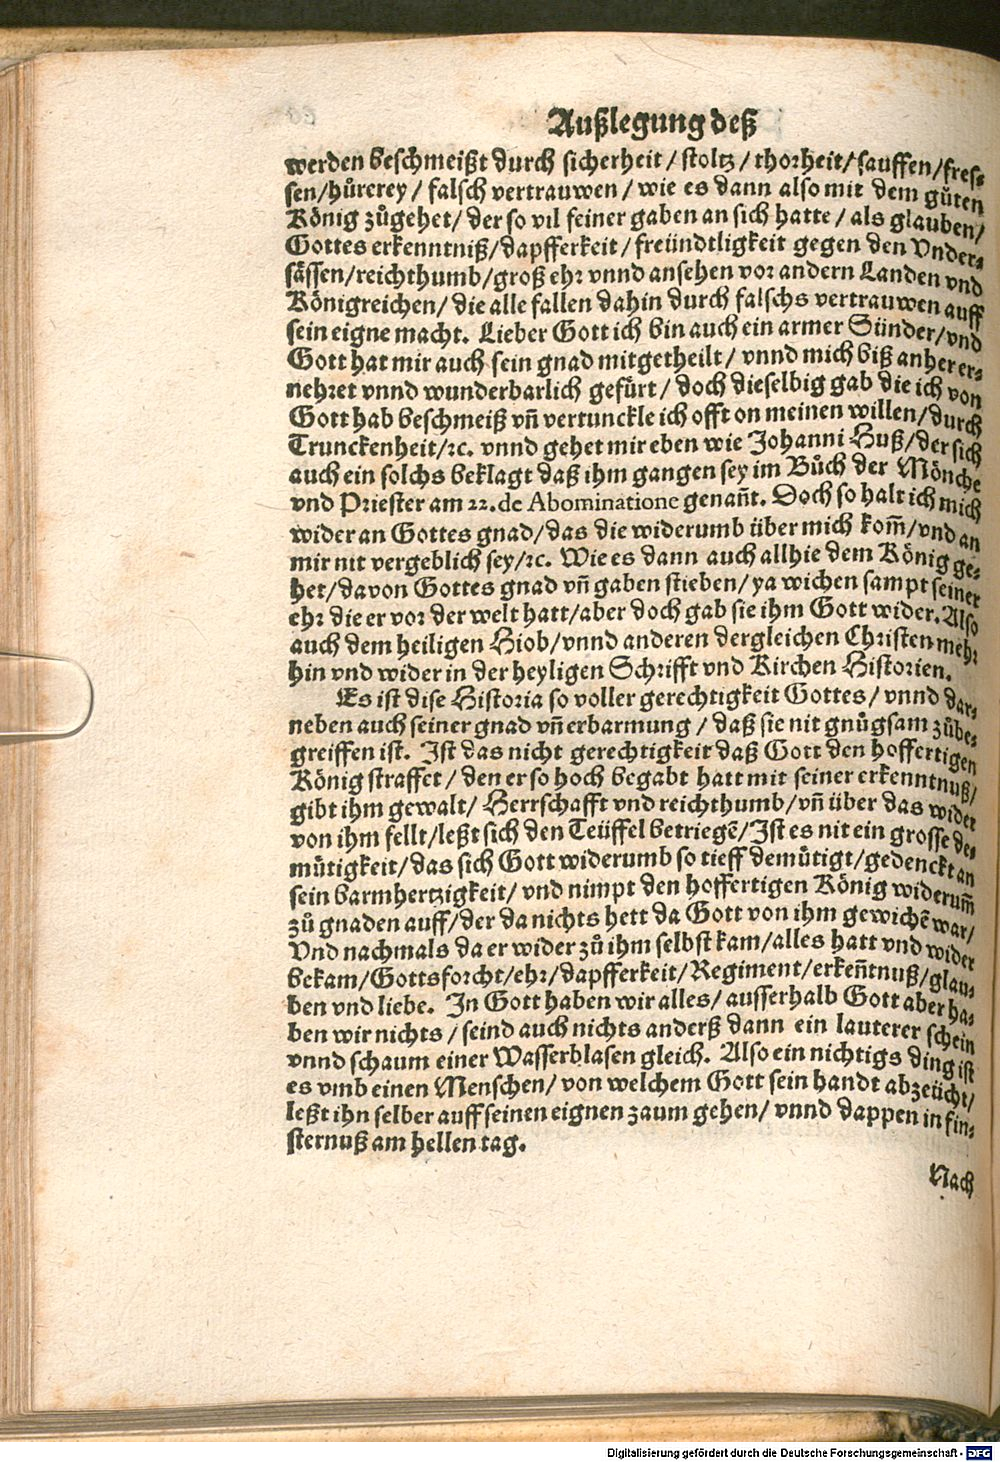 Außlegung deß
werden beschmeißt durch sicherheit / stoltz / thorheit / sauffen / fres⸗
sen / hůrerey / falsch vertrauwen / wie es dann also mit dem gůten
König zůgehet / der so vil feiner gaben an sich hatte / als glauben /
Gottes erkenntniß / dapfferkeit / freündtligkeit gegen den Vnder⸗
sässen / reichthumb / groß ehr vnnd ansehen vor andern Landen vnd
Königreichen / die alle fallen dahin durch falschs vertrauwen auff
sein eigne macht. Lieber Gott ich bin auch ein armer Sünder / vnd
Gott hat mir auch sein gnad mitgetheilt / vnnd mich biß anher er⸗
nehret vnnd wunderbarlich gefürt / doch dieselbig gab die ich von
Gott hab beschmeiß vñ vertunckle ich offt on meinen willen / durch
Trunckenheit / ꝛc. vnnd gehet mir eben wie Johanni Huß / der sich
auch ein solchs beklagt daß ihm gangen sey im Bůch der Mönche
vnd Priester am 22. de Abominatione genañt. Doch so halt ich mich
wider an Gottes gnad / das die widerumb über mich kom̃ / vnd an
mir nit vergeblich sey / ꝛc. Wie es dann auch allhie dem König ge⸗
het / davon Gottes gnad vñ gaben stieben / ya wichen sampt seiner
ehr die er vor der welt hatt / aber doch gab sie ihm Gott wider. Also
auch dem heiligen Hiob / vnnd anderen dergleichen Christen mehr
hin vnd wider in der heyligen Schrifft vnd Kirchen Historien.
Es ist dise Historia so voller gerechtigkeit Gottes / vnnd dar⸗
neben auch seiner gnad vñ erbarmung / daß sie nit gnůgsam zůbe⸗
greiffen ist. Ist das nicht gerechtigkeit daß Gott den hoffertigen
König straffet / den er so hoch begabt hatt mit seiner erkenntnuß /
gibt ihm gewalt / Herrschafft vnd reichthumb / vñ über das wider
von ihm fellt / leßt sich den Teüffel betriegẽ / Ist es nit ein grosse de⸗
můtigkeit / das sich Gott widerumb so tieff demůtigt / gedenckt an
sein barmhertzigkeit / vnd nimpt den hoffertigen König widerum̃
zů gnaden auff / der da nichts hett da Gott von ihm gewichẽ war /
Vnd nachmals da er wider zů ihm selbst kam / alles hatt vnd wider
bekam / Gottsforcht / ehr / dapfferkeit / Regiment / erkeñtnuß / glau⸗
ben vnd liebe. In Gott haben wir alles / ausserhalb Gott aber ha⸗
ben wir nichts / seind auch nichts anderß dann ein lauterer schein
vnnd schaum einer Wasserblasen gleich. Also ein nichtigs ding ist
es vmb einen Menschen / von welchem Gott sein handt abzeücht /
leßt ihn selber auff seinen eignen zaum gehen / vnnd dappen in fin⸗
sternuß am hellen tag.
Nach
Digitalisierung gefördert durch die Deutsche Forschungsgemeinschaft - DFG